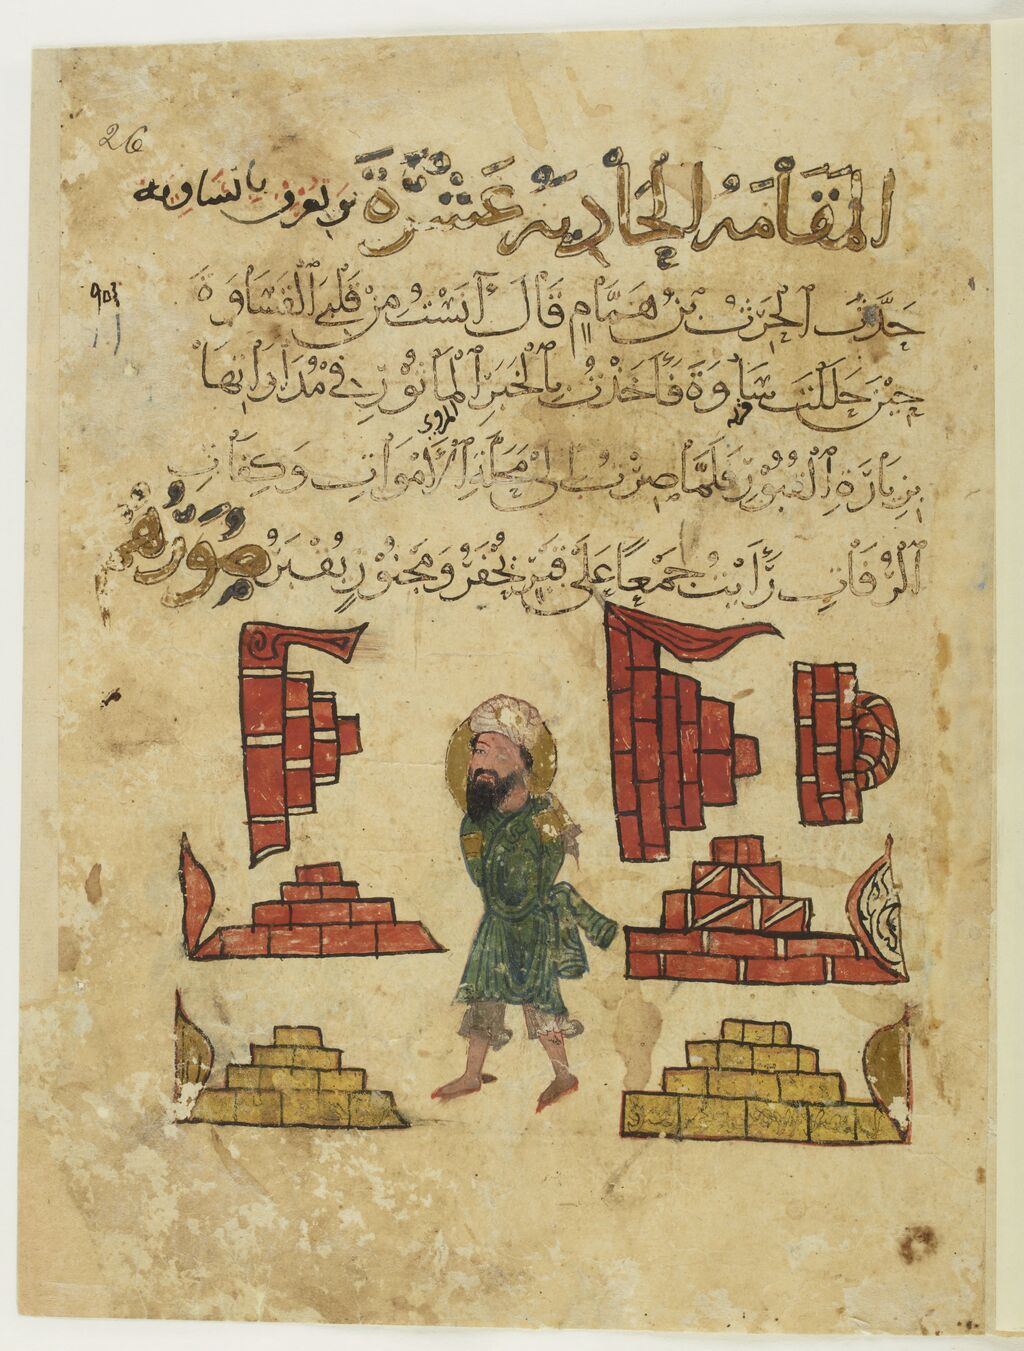 26
المَقَامَةُ الحَادِيَةُ عَشْرَةَ وتعرف بالساوية
حَدَّثَ الحٰرِثُ بْنُ هَمَّامٍ قَالَ آنَسْتُ مِنْ قَلْبِي القَسَاوَةَ
حِيْنَ حَلَلْتُ سَاوَةَ فَأَخَذْتُ بِالْخَبَرِ المَأْثُوْرِ فِي مُدَاوَاتِهَا
المروي
بِزِيَارَةِ القُبُوْرِ فَلَمَّا صِرْتُ اِلَى مَحَلَّةِ الْأَمْوَاتِ وَكِفَاتِ
الرُّفَاتِ رَأَيْتُ جَمْعًا عَلَى قَبْرٍ يُحْفَرُ وَمَجْنُوْزٍ يُقْبَرُ صُورَتُهُ